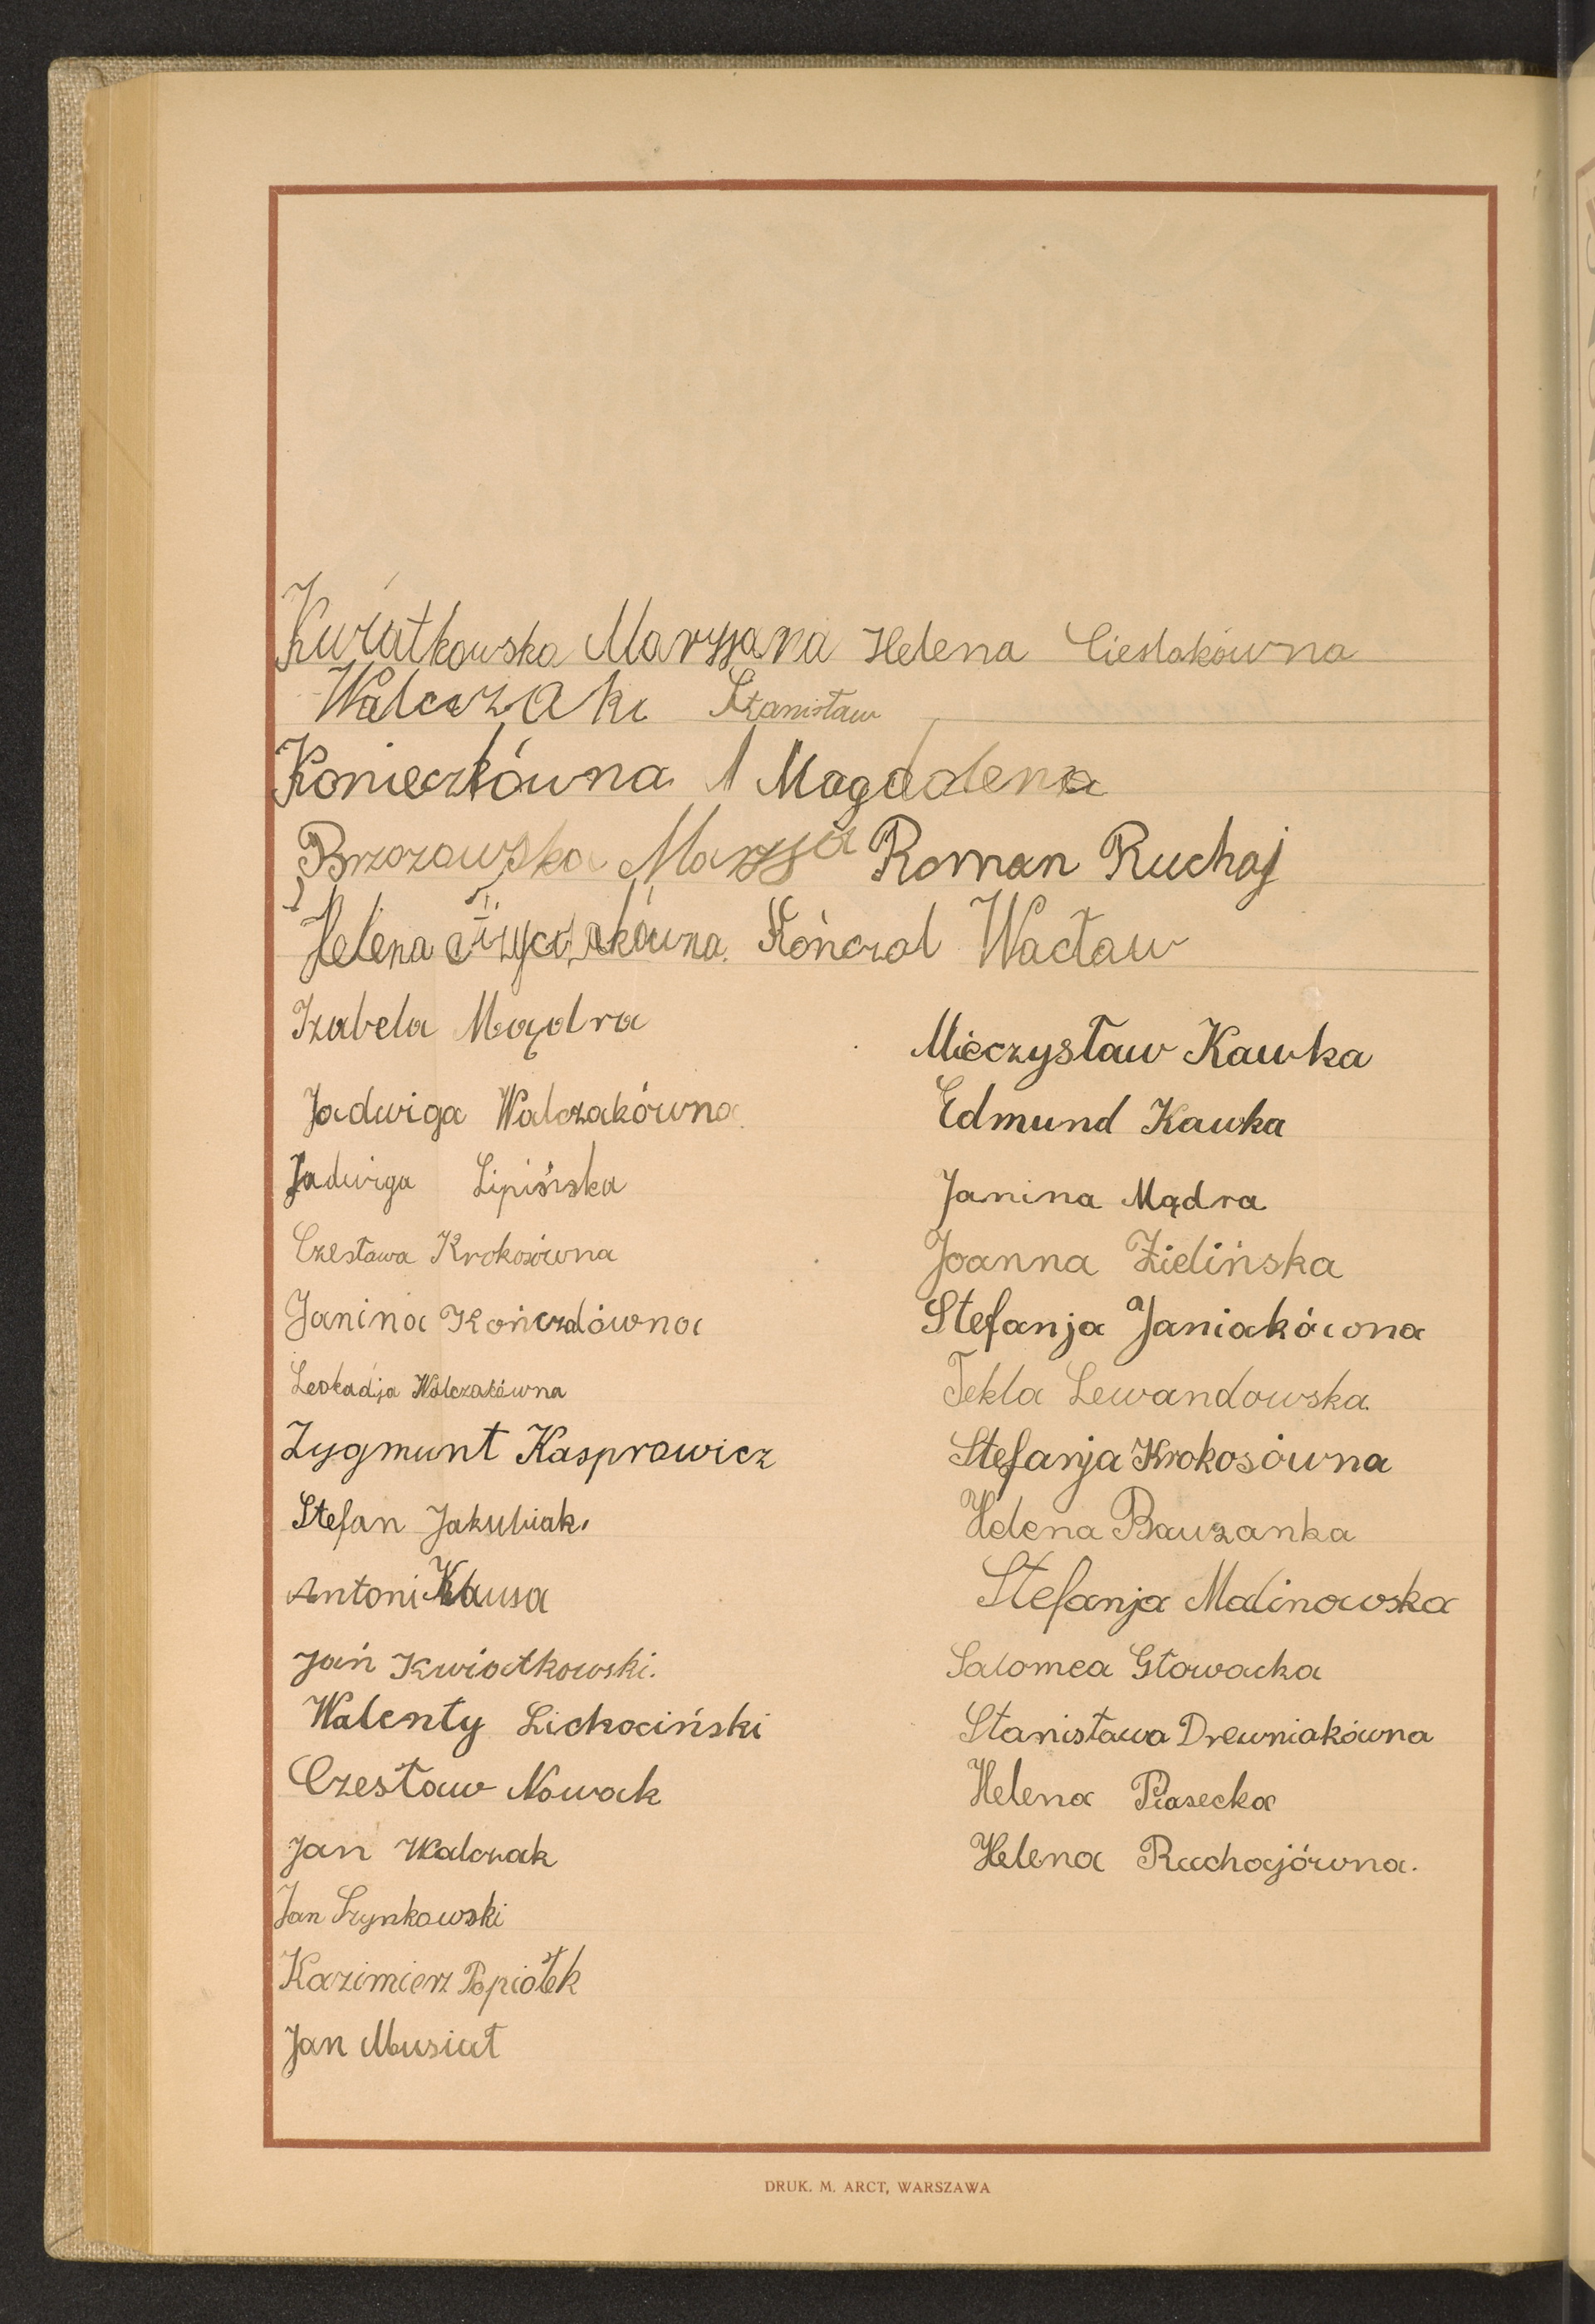 Kwiatkowska Maryjana Helena Cieślakówna
Walczak Stanisław
Konieczkówna Magdelena
Brzozowska Maryja Roman Ruchaj
Helena Kończal Wacław
Izabela Mądra
Jadwiga Walczakówna
Jadwiga Lipińska
Czesława Krokosówna
Janina Kończalówna
Leokadja Walczakówna
Zygmunt Kasprowicz
Stefan Jakubiak.
Antoni Klausa
Jań Kwiatkowski.
Walenty Lichociński
Czesław Nowak
Jan Walczak
Jan Szynkowski
Kazimierz Popiołek
Jan Musiał
Mieczysław Kawka
Edmund Kawka
Janina Mądra
Joanna Zielińska
Stefanja Janiakówna
Tekla Lewandowska
Stefanja Krokosówna
Helena Bauzanka
Stefanja Malinowska
Salomea Głowacka
Stanisława Drewniakówna
Helena Piasecka
Helena Ruchajówna.
DRUK. M. ARCT, WARSZAWA